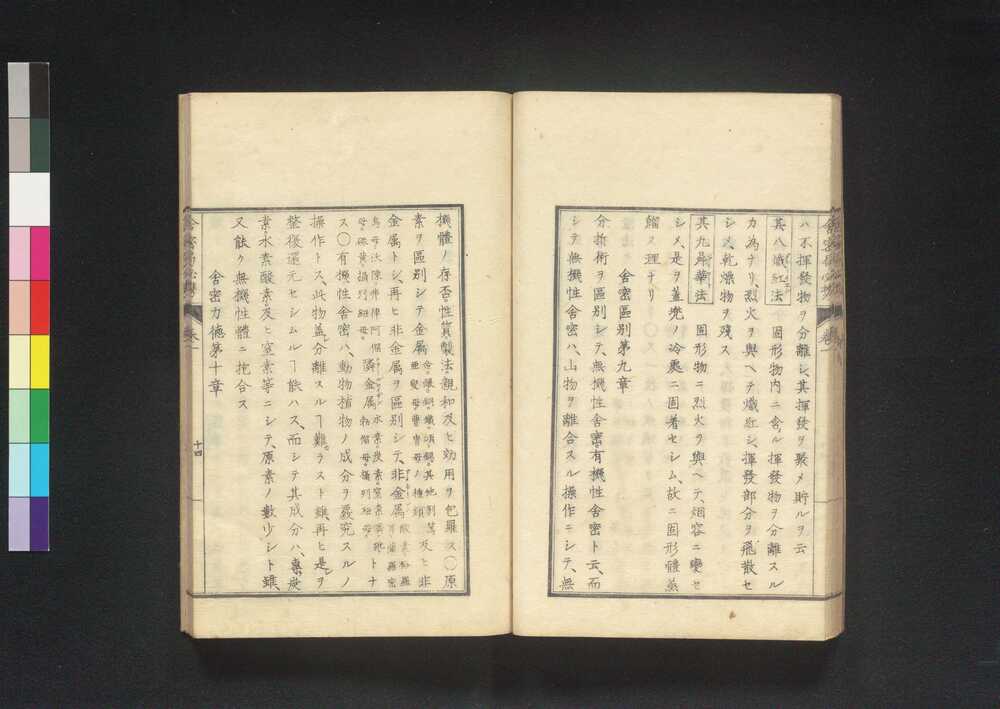 ハ不揮發物ヲ分離シ、其揮發ヲ聚メ貯ルヲ云
其八熾紅法 固形物内ニ含ル揮發物ヲ分離スル
カ為ナリ、烈火ヲ與ヘテ熾紅シ、揮發部分ヲ飛散セ
シメ、乾燥物ヲ残ス
其九昇華法 固形物ニ烈火ヲ與ヘテ、烟容ニ變セ
シメ、是ヲ蓋兜ノ冷處ニ固着セシム、故ニ固形體蒸
餾ス理ナリ
舎密區别第九章
分析術ヲ區别シテ、無機性舎密有機性舎密ト云、而
シテ無機性舎密ハ、山物ヲ離合スル操作ニシテ、無
機體ノ存否性質製法親和及ヒ効用ヲ包羅ス〇原
素ヲ區别シテ金属 及ヒ非
金属トシ、再ヒ非金属ヲ區别シテ、非金属
燐金属 トナ
ス〇有機性舎密ハ、動物植物ノ成分ヲ嚴究スルノ
操作トス、此物蓋シ分離スルヿ難カラスト雖、再ヒ是ヲ
整復還元セシムルヿ能ハス、而シテ其成分ハ、專炭
素水素酸素及ヒ窒素等ニシテ、原素ノ數少シト雖、
又能ク無機性體ニ抱合ス
舎密力德第十章
十四